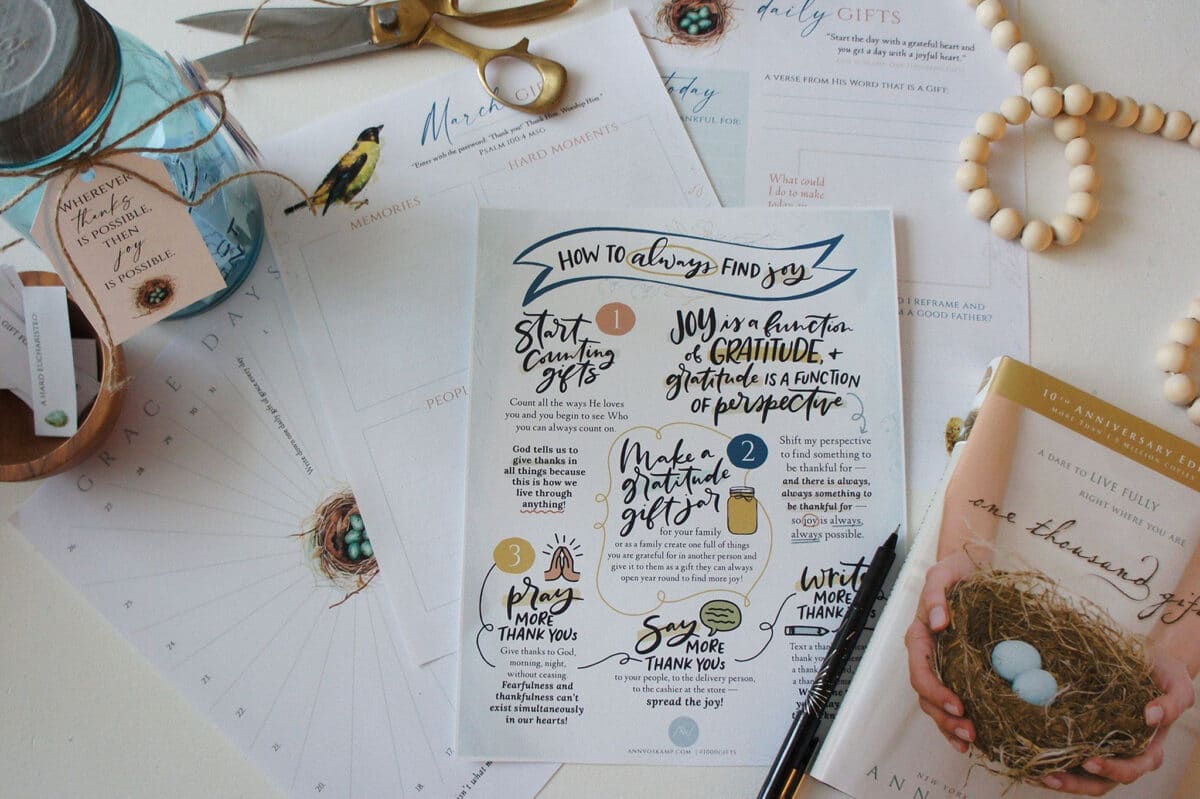 daily GIFTS
"Start the day with a grateful heart and
you get a day with a joyful heart."
today
THANKFUL FOR:
A VERSE FROM HIS WORD THAT IS A GIFT:
What could
I do to make
March
"Enter with the password: 'Thank you!' Thank Him. Worship Him."
PSALM 100:4 MSG
HARD MOMENTS
MEMORIES
I REFRAME AND
A GOOD FATHER?
WHEREVER
thanks
IS POSSIBLE,
THEN
joy
IS POSSIBLE.
A HARD EUCHARISTEO
GRACE DAYS
Write down one daily gifts of grace every day
26
25
24
23
22
21
20
19
18
HOW TO always FIND joy
1
Start
Counting
gifts
Count all the ways He loves
you and you begin to see Who
you can always count on.
God tells us to
give thanks in
all things because
this is how we
live through
anything!
JOY is a function
of GRATITUDE, +
gratitude IS A FUNCTION
OF perspective
Shift my perspective
to find something to
be thankful for —
and there is always,
always something to
be thankful for —
so joy is always,
always possible.
2
Make a
gratitude
gift jar
for your family
or as a family create one full of things
you are grateful for in another person and
give it to them as a gift they can always
open year round to find more joy!
3
pray
MORE
THANK YOUs
Give thanks to God,
morning, night,
without ceasing.
Fearfulness and
thankfulness can't
exist simultaneously
in our hearts!
Say
MORE
THANK YOUs
to your people, to the delivery person,
to the cashier at the store —
spread the joy!
Write
MORE
THANK
Text a
thank
ANNVOSKAMP.COM | #1000GIFTS
10TH ANNIVERSARY
MORE THAN 1.5 MILLION COPIES
A DARE TO LIVE FULLY
RIGHT WHERE YOU ARE
one thousand
NEW YORK
ANN